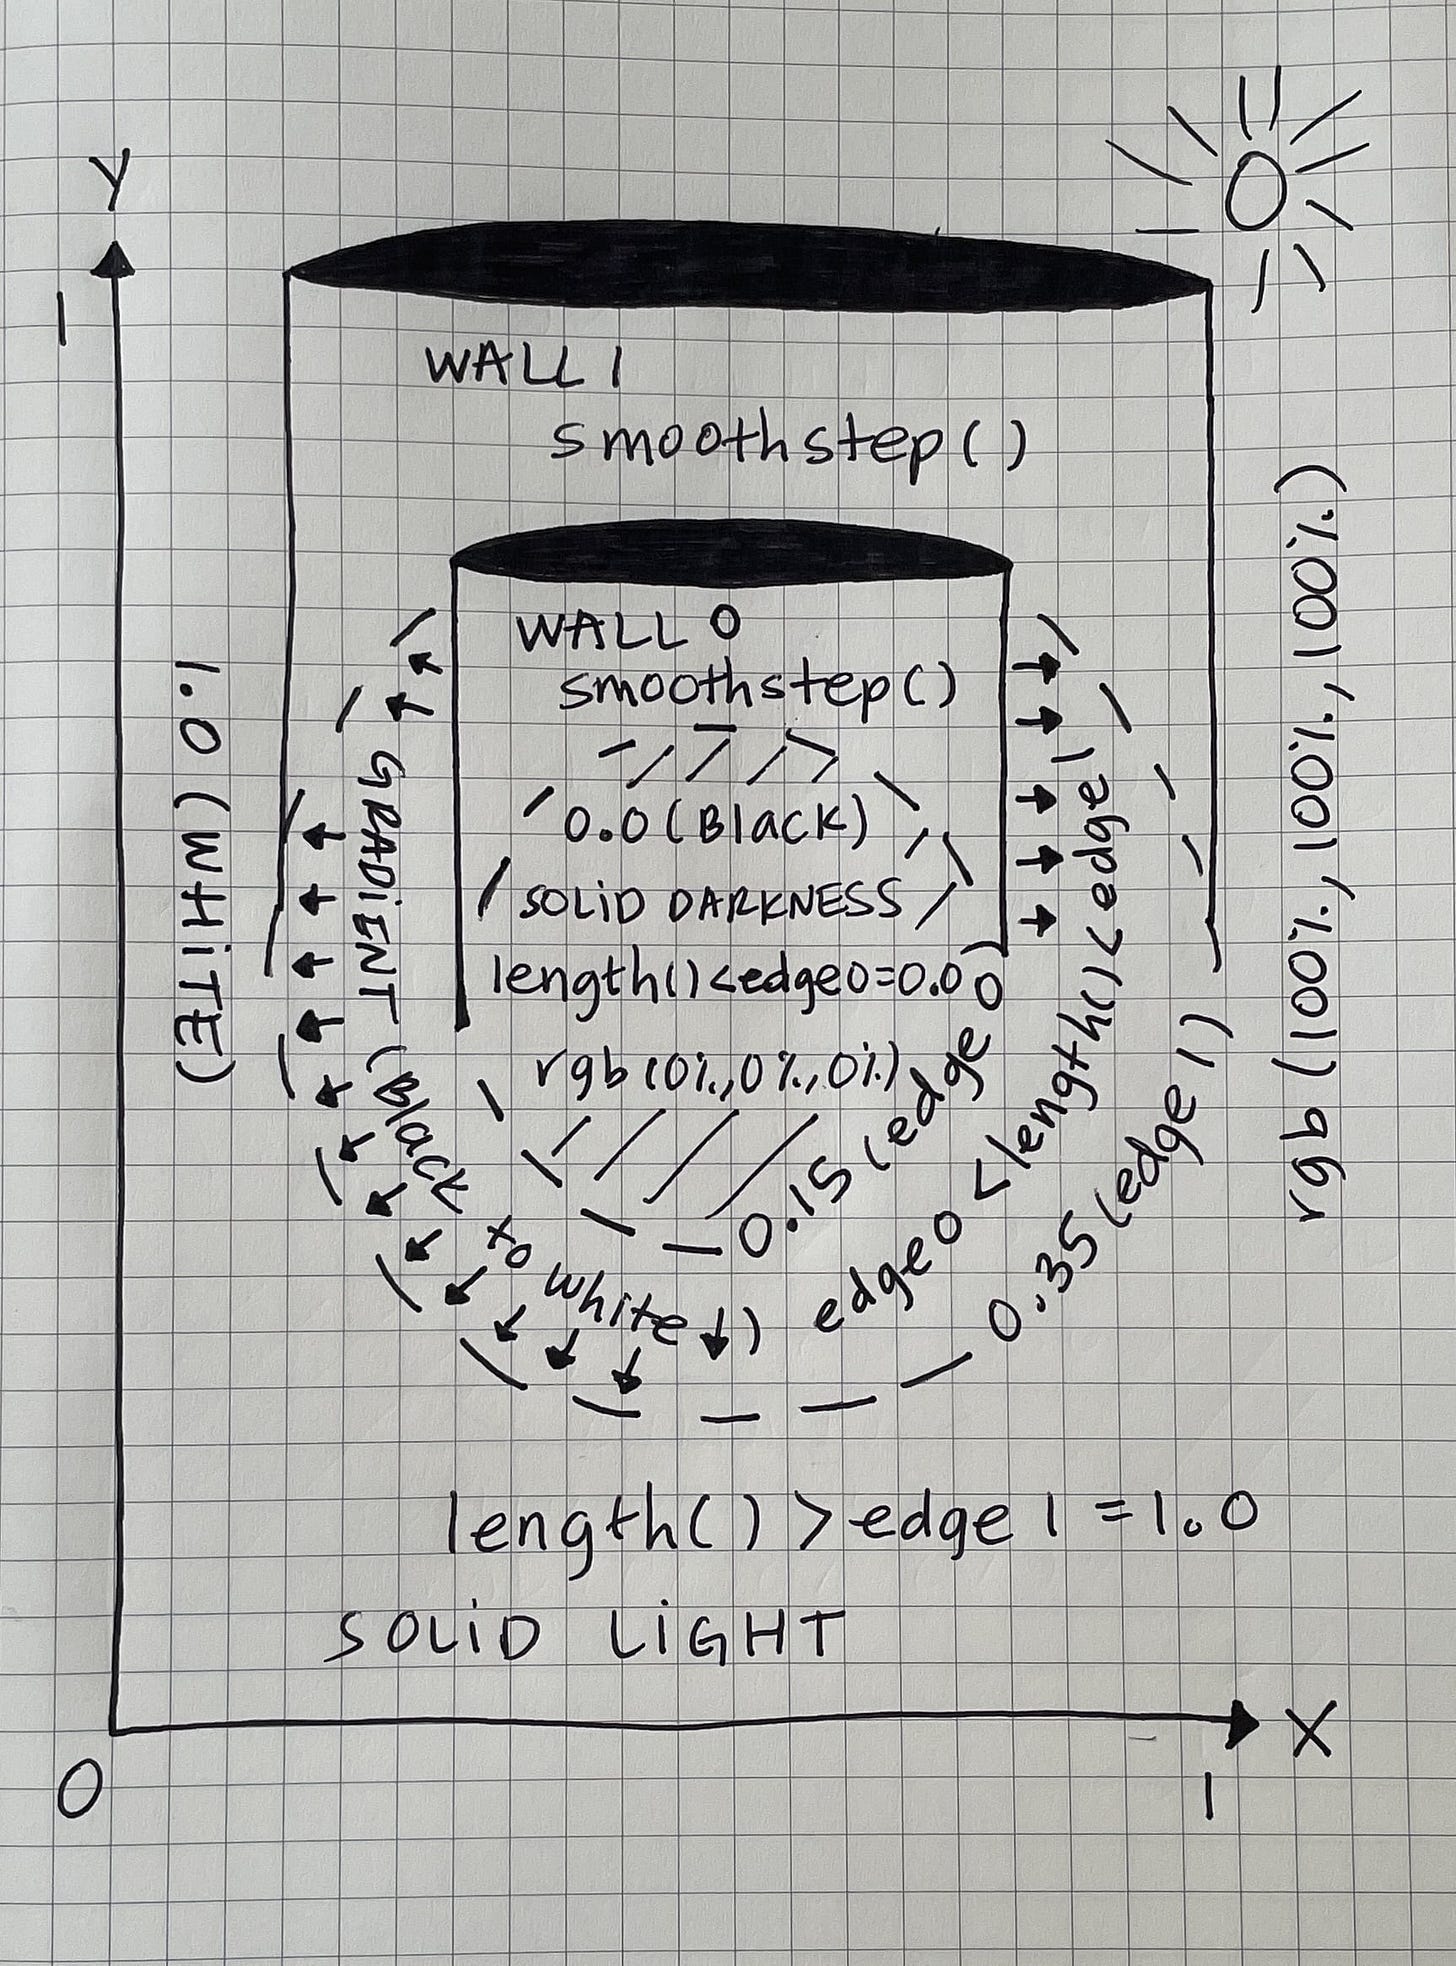 Y
1
WALL 1
smoothstep()
WALL 0
smoothstep()
0.0 (Black)
SOLiD DARKNESS
length()<edge0=0.0
rgb(0%,0%,0%)
0.15 (edge 0)
edge0 <length()< edge1
0.35 (edge 1)
GRADiENT (Black to white)
1.0 (WHiTE)
rgb (100%, 100%, 100%)
length() > edge 1 = 1.0
SOLiD LiGHT
X
0
1